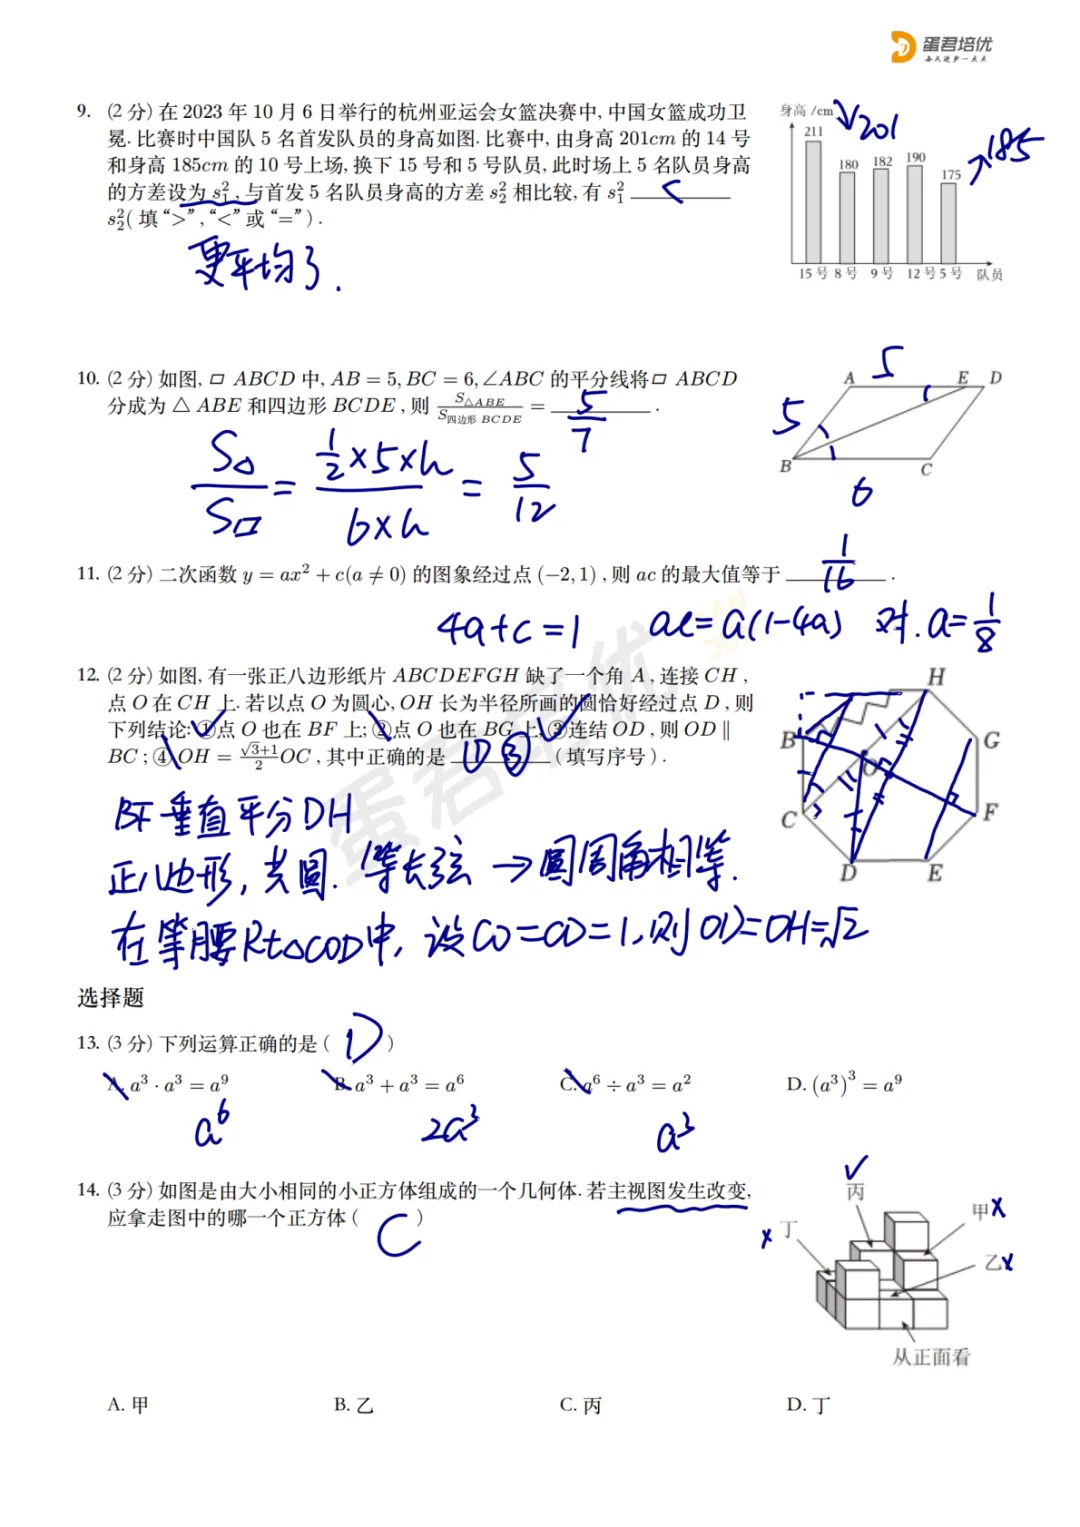 蛋君培优
每天进步一点点
9. (2 分) 在 2023 年 10 月 6 日举行的杭州亚运会女篮决赛中, 中国女篮成功卫
冕. 比赛时中国队 5 名首发队员的身高如图. 比赛中, 由身高 201cm 的 14 号
和身高 185cm 的 10 号上场, 换下 15 号和 5 号队员, 此时场上 5 名队员身高
的方差设为 s₁², 与首发 5 名队员身高的方差 s₂² 相比较, 有 s₁² <
s₂²( 填 “>”, “<” 或 “=”) .
更平均了.
身高 /cm
201
211
180
182
190
175
185
15 号 8 号 9 号 12 号 5 号 队员
10. (2 分) 如图, ▱ ABCD 中, AB = 5, BC = 6, ∠ABC 的平分线将 ▱ ABCD
分成为 △ ABE 和四边形 BCDE , 则 S△ABE / S四边形 BCDE = 5/7 .
S△/S▱ = (½×5×h)/(6×h) = 5/12
5
A E D
5
B C
6
11. (2 分) 二次函数 y = ax² + c(a ≠ 0) 的图象经过点 (−2, 1) , 则 ac 的最大值等于 1/16 .
4a+c=1 ac=a(1-4a) 对.a=1/8
12. (2 分) 如图, 有一张正八边形纸片 ABCDEFGH 缺了一个角 A, 连接 CH ,
点 O 在 CH 上. 若以点 O 为圆心, OH 长为半径所画的圆恰好经过点 D , 则
下列结论: ①点 O 也在 BF 上; ②点 O 也在 BG 上; ③连结 OD , 则 OD ∥
BC ; ④ OH = (√3+1)/2 OC , 其中正确的是 ①③ ( 填写序号) .
H
B G
O
C F
D E
BF垂直平分DH
正八边形, 共圆. 等长弦 → 圆周角相等.
在等腰Rt△COD中, 设CO=CD=1, 则OD=OH=√2
蛋君培优
选择题
13. (3 分) 下列运算正确的是 ( D )
A. a³ · a³ = a⁹ B. a³ + a³ = a⁶ C. a⁶ ÷ a³ = a² D. (a³)³ = a⁹
a⁶ 2a³ a³
14. (3 分) 如图是由大小相同的小正方体组成的一个几何体. 若主视图发生改变,
应拿走图中的哪一个正方体 ( C )
丙
甲
丁
乙
从正面看
A. 甲 B. 乙 C. 丙 D. 丁